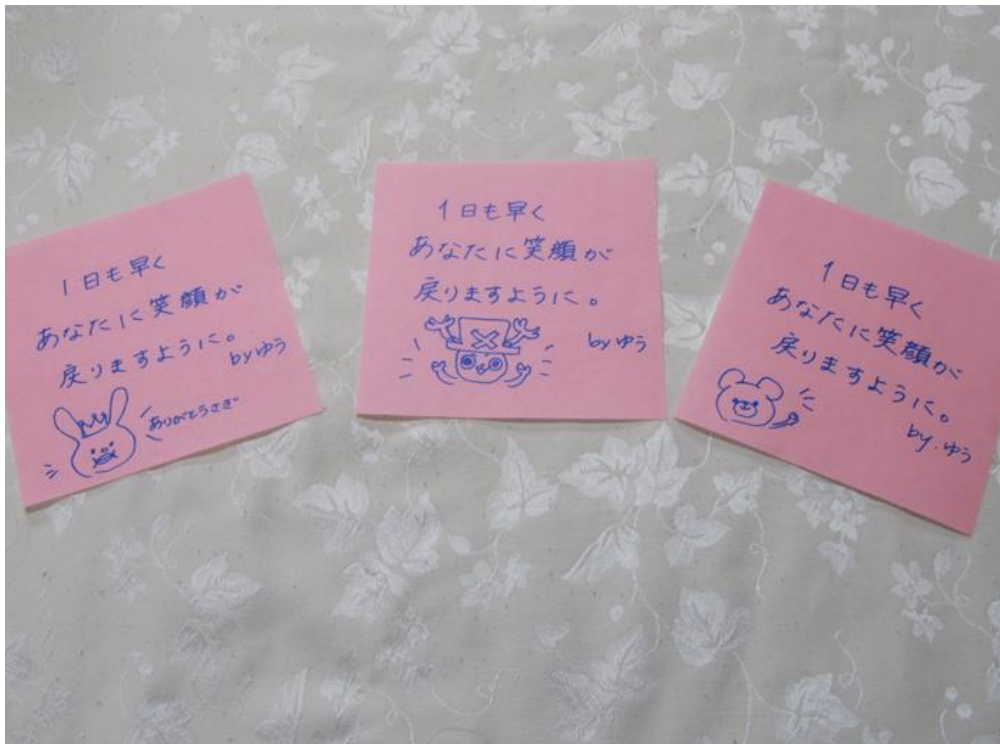 1日も早く
あなたに笑顔が
戻りますように。
byゆう
ありがとうさぎ
1日も早く
あなたに笑顔が
戻りますように。
byゆう
1日も早く
あなたに笑顔が
戻りますように。
by.ゆう